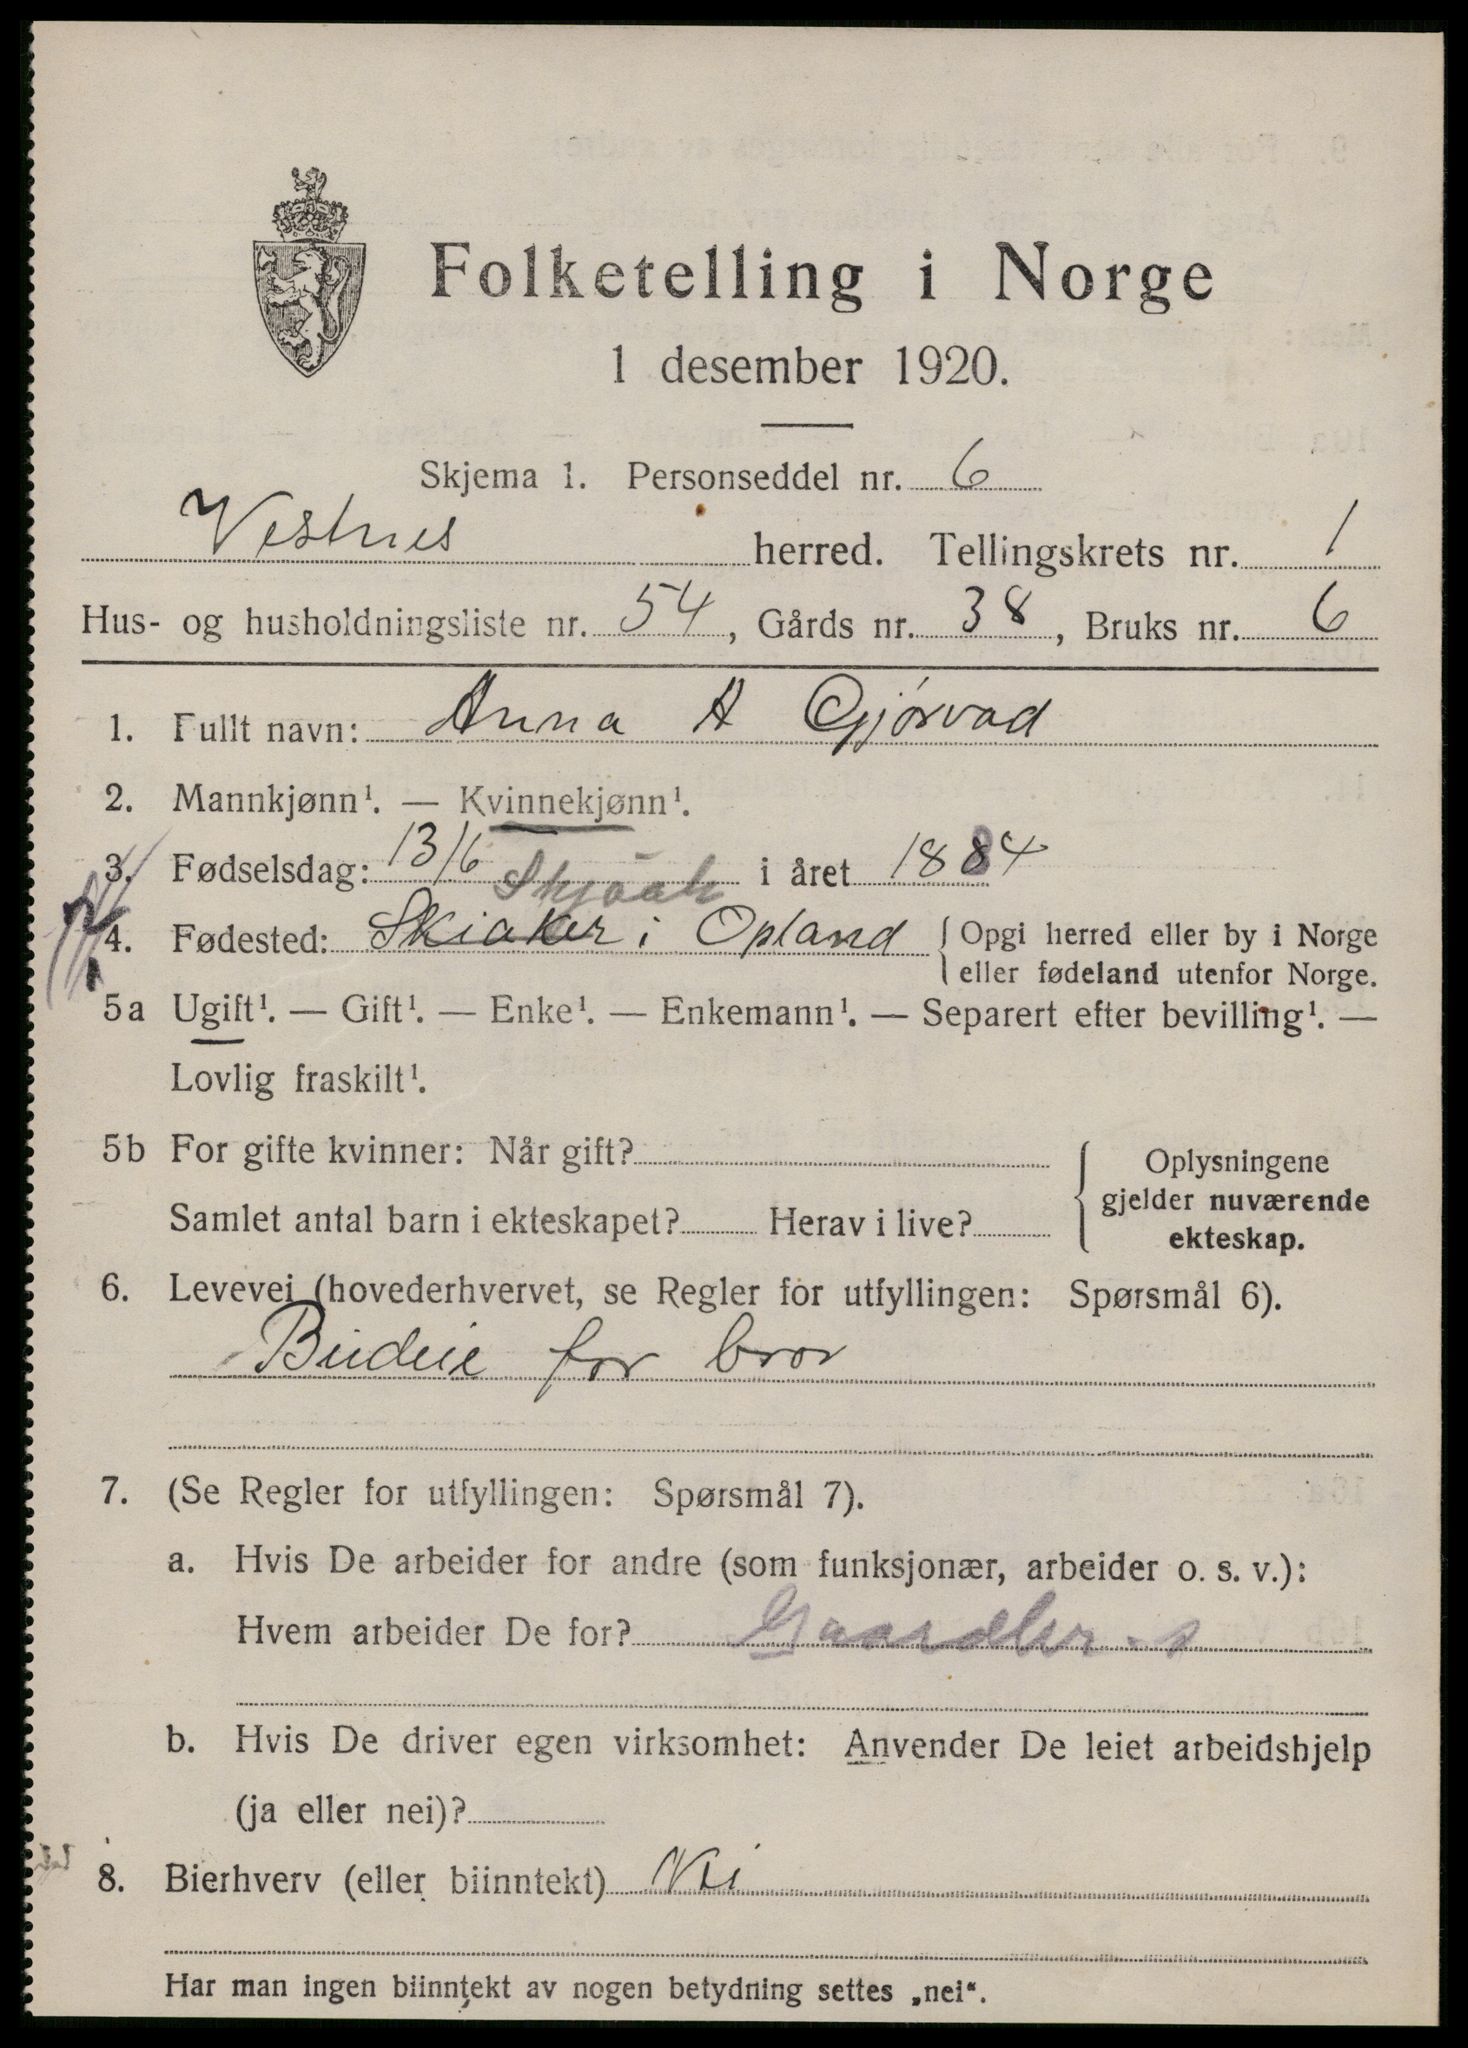 Folketelling i Norge
1 desember 1920.
Skjema 1. Personseddel nr. 6
Vestnes herred. Tellingskrets nr. 1
Hus- og husholdningsliste nr. 54, Gårds nr. 38, Bruks nr. 6
1. Fullt navn: Anna A Gjørvad
2. Mannkjønn¹. — Kvinnekjønn¹.
3. Fødselsdag: 13/6 i året 1884
Skjaak
4. Fødested: Skiaker i Opland { Opgi herred eller by i Norge
eller fødeland utenfor Norge.
5a Ugift¹. — Gift¹. — Enke¹. — Enkemann¹. — Separert efter bevilling¹. —
Lovlig fraskilt¹.
5b For gifte kvinner: Når gift?
Samlet antal barn i ekteskapet? Herav i live?
Oplysningene
gjelder nuværende
ekteskap.
6. Levevei (hovederhvervet, se Regler for utfyllingen: Spørsmål 6).
Budeie for bror
7. (Se Regler for utfyllingen: Spørsmål 7).
a. Hvis De arbeider for andre (som funksjonær, arbeider o. s. v.):
Hvem arbeider De for? Gaardbr. s
b. Hvis De driver egen virksomhet: Anvender De leiet arbeidshjelp
(ja eller nei)?
8. Bierhverv (eller biinntekt) Nei
Har man ingen biinntekt av nogen betydning settes „nei“.